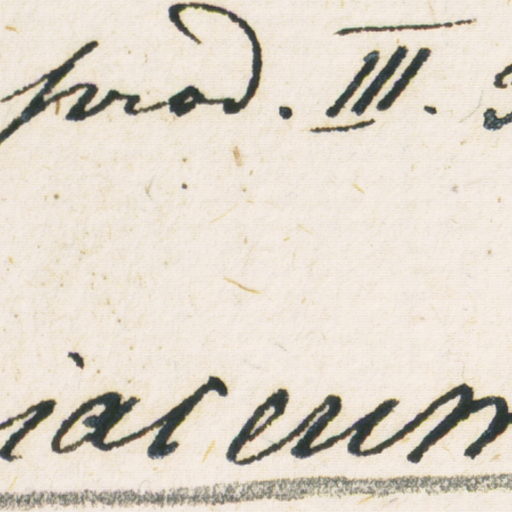 prod. III.
iaceum